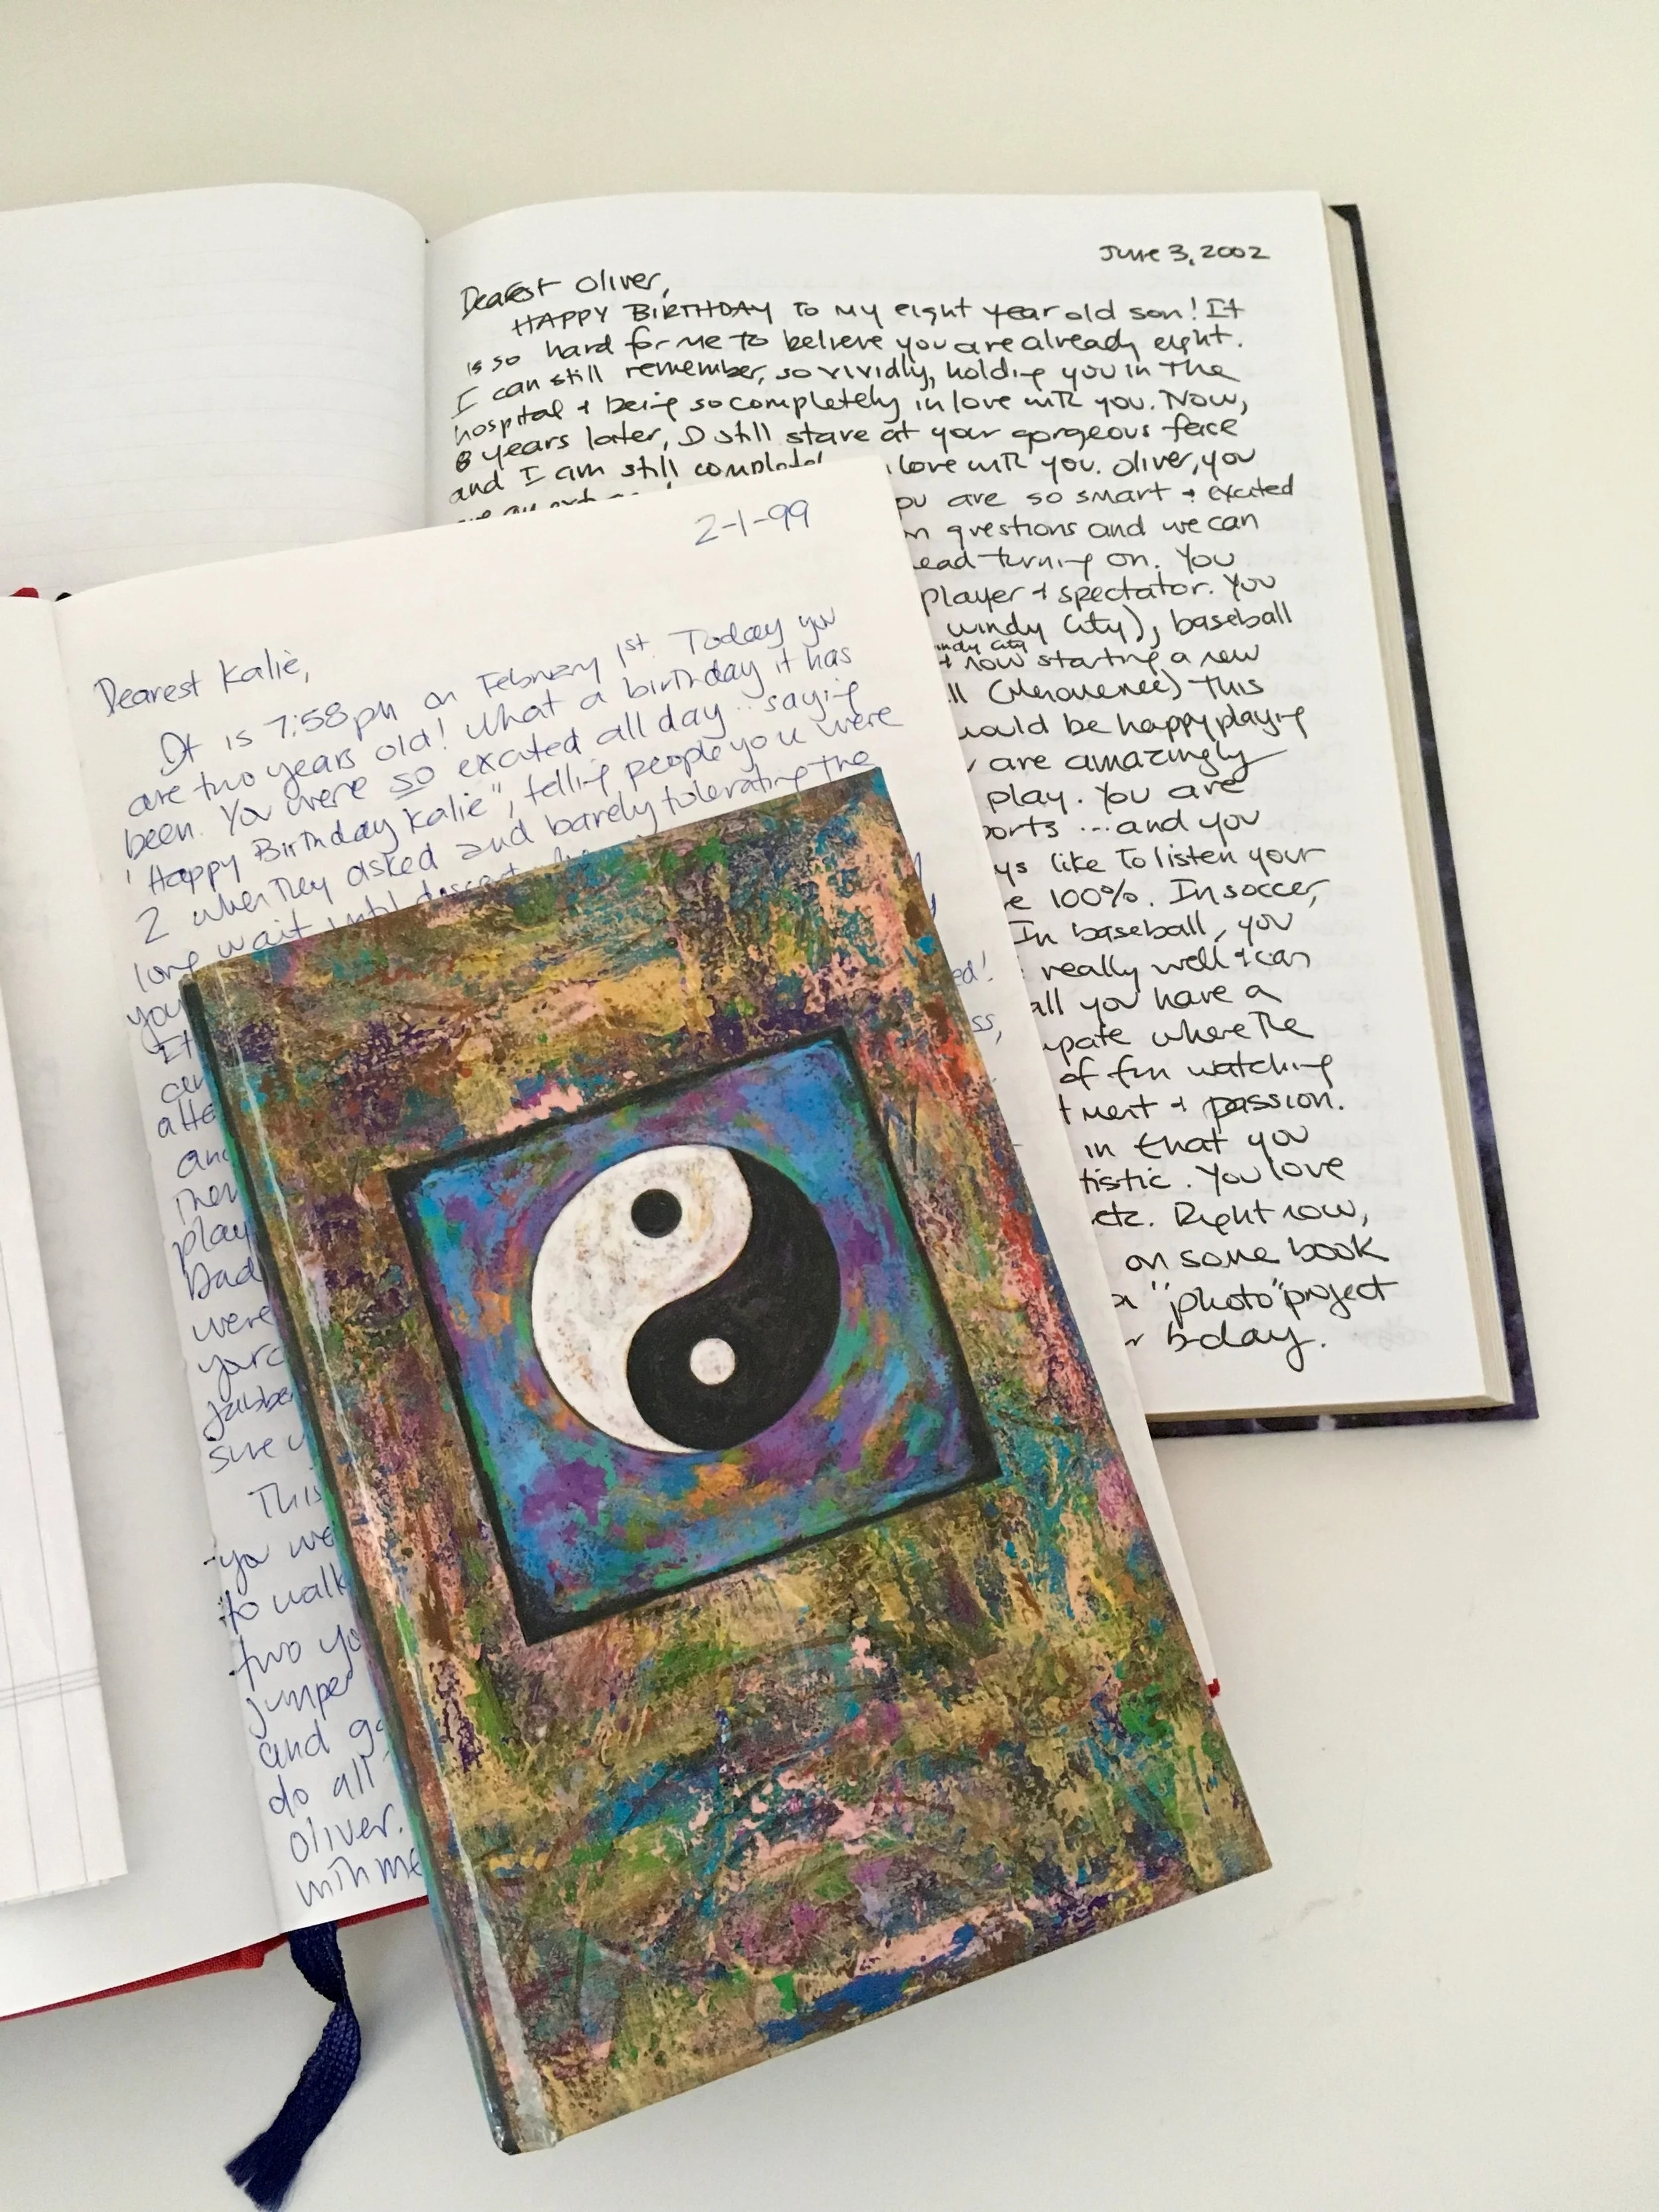 June 3, 2002
Dearest Oliver,
HAPPY BIRTHDAY to my eight year old son! It
is so hard for me to believe you are already eight.
I can still remember, so vividly, holding you in the
hospital & being so completely in love with you. Now,
8 years later, I still stare at your gorgeous face
and I am still love with you. Oliver, you
are so smart & excited
questions and we can
turning on. You
player & spectator. You
windy city), baseball
windy city
& now starting a new
This
would be happy playing
are amazingly
play. You are
and you
like to listen your
100%. In soccer,
In baseball, you
really well & can
all you have a
where the
of fun watching
& passion.
in that you
You love
etc. Right now,
on some book
"photo" project
b-day.
2-1-99
Dearest Kalie,
It is 7:58pm on February 1st. Today you
are two years old! What a birthday it has
been. You were so excited all day... saying
"Happy Birthday Kalie", telling people you were
2 when they asked and barely tolerating the
long wait until
you
It
and
Then
play
Dad
were
sure
This
you
to walk
two
and
do all
Oliver.
with me